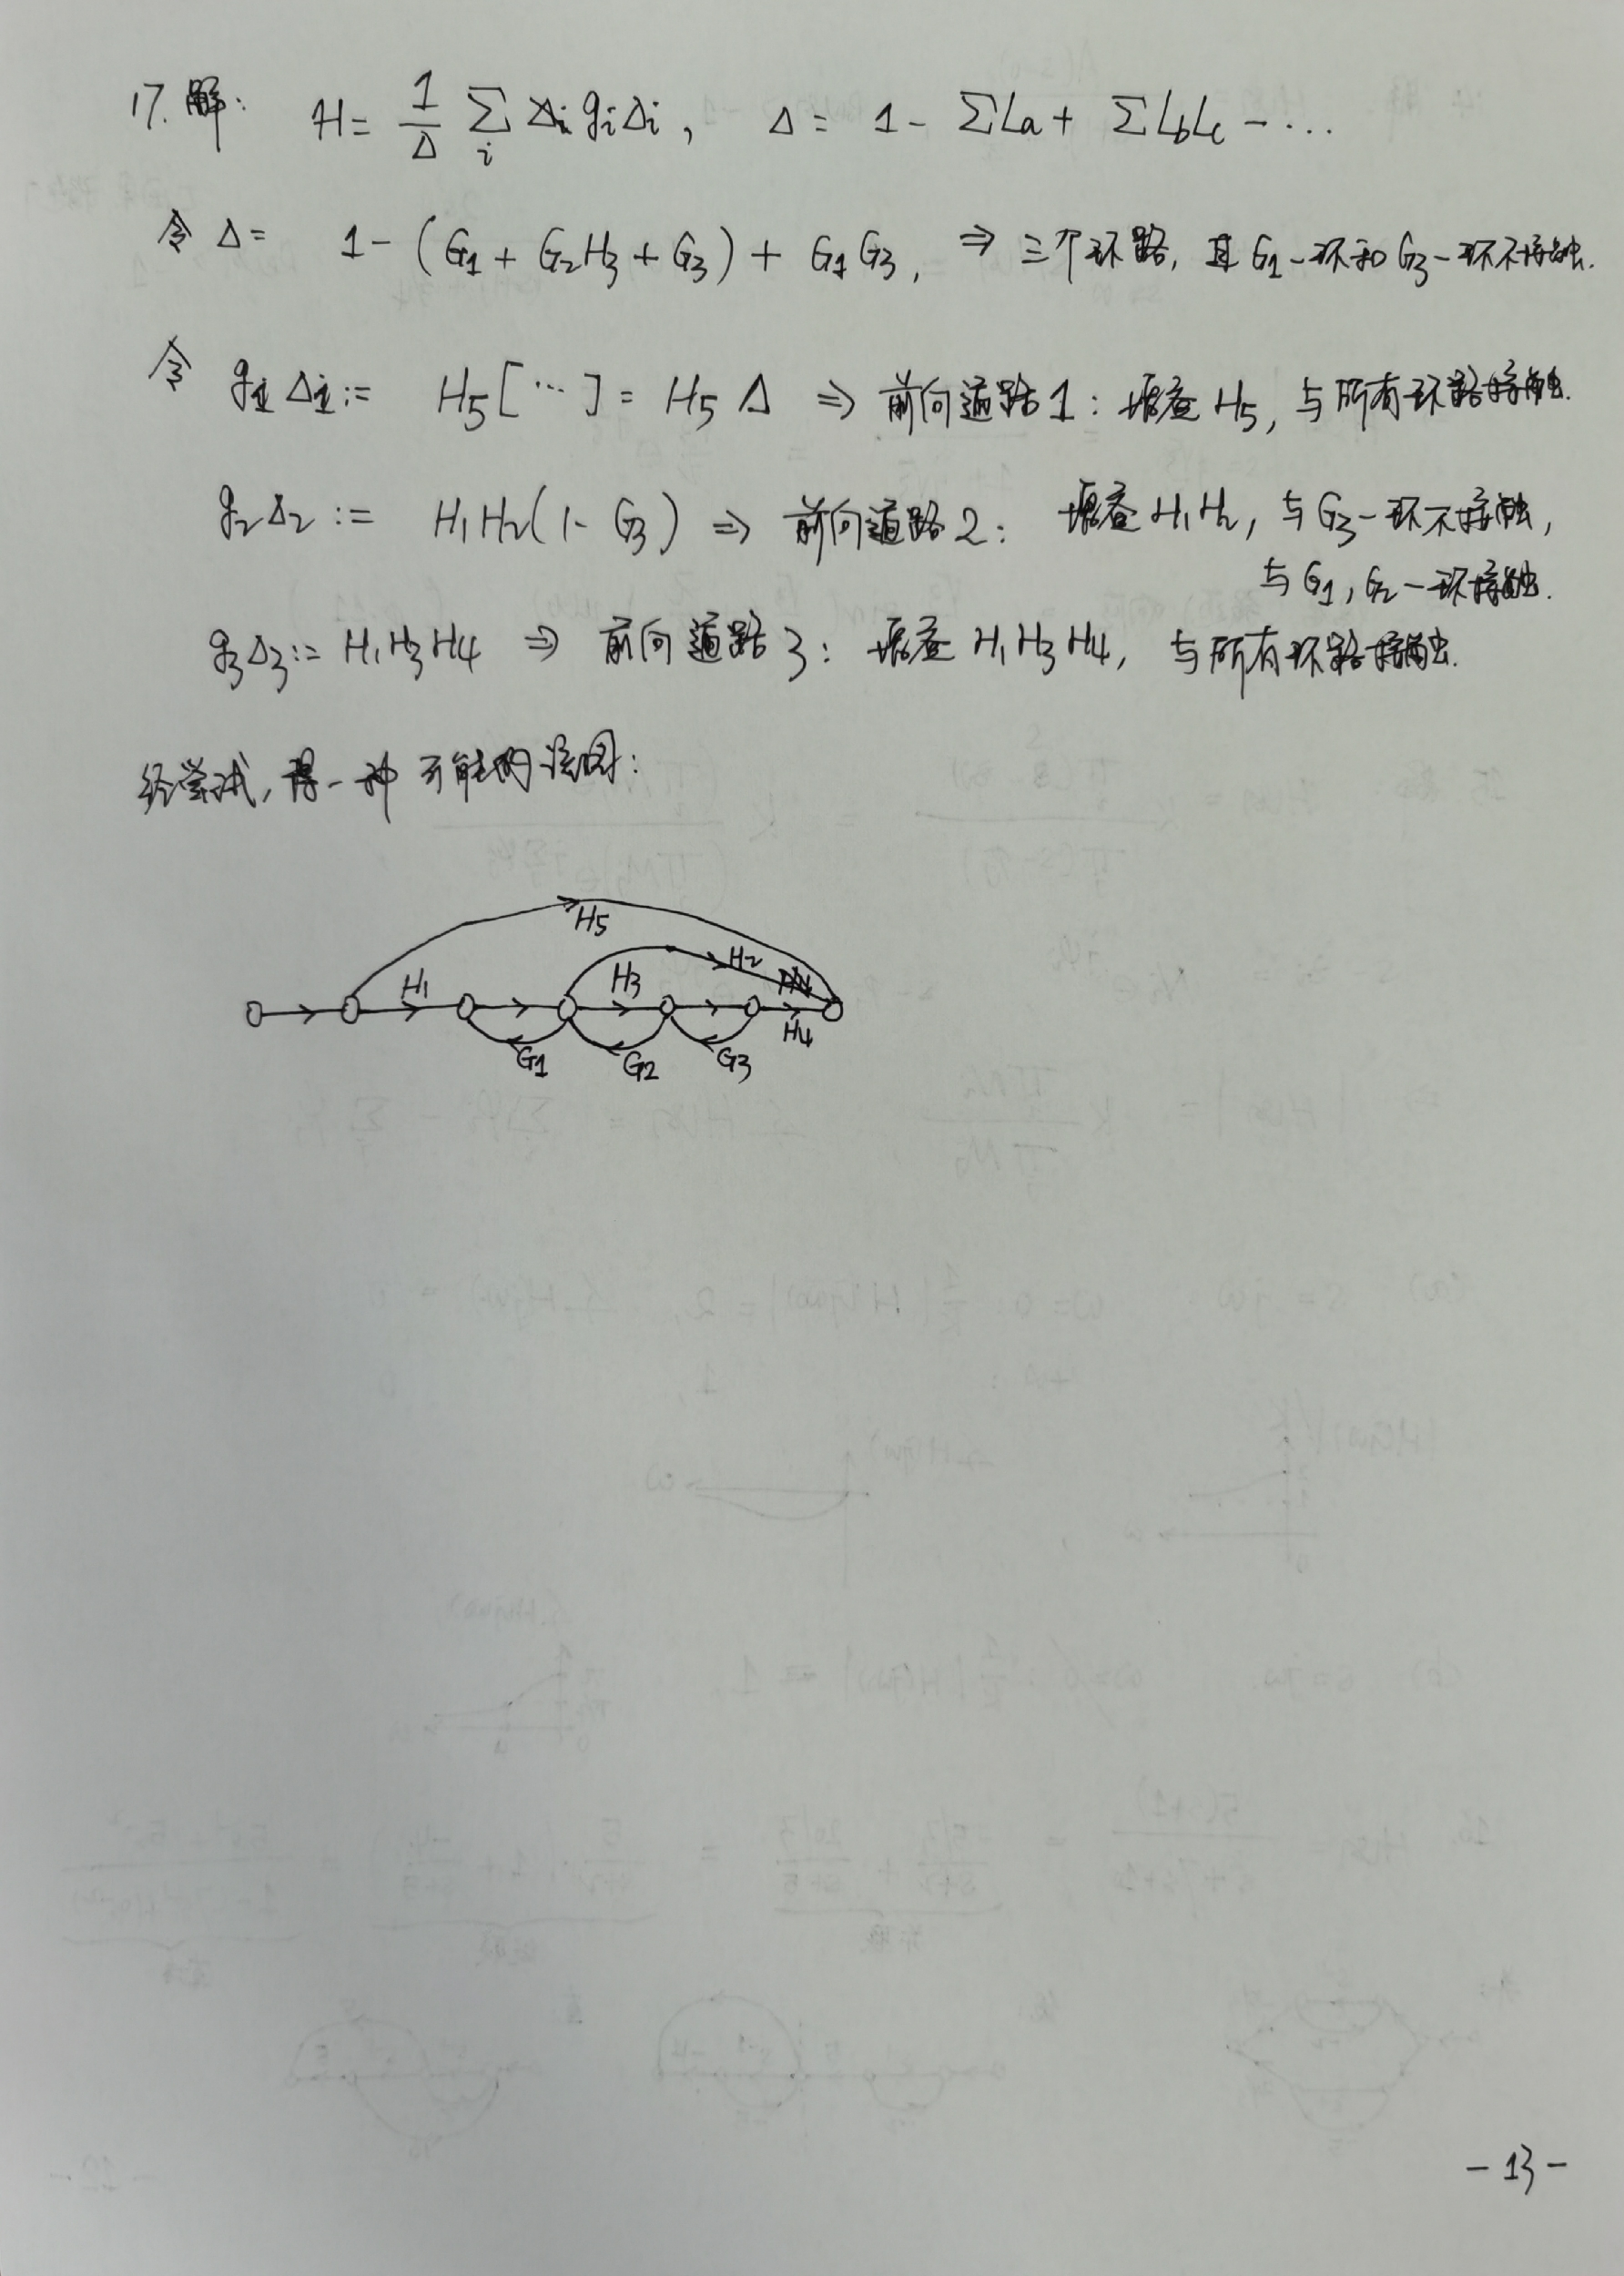 17. 解: H = 1/Δ ∑i gi Δi, Δ = 1 - ∑La + ∑LbLc - ...
令 Δ = 1 - (G1 + G2H3 + G3) + G1G3, ⇒ 三个环路, 且 G1-环和 G3-环不接触.
令 g1Δ1 := H5[...] = H5Δ ⇒ 前向通路1: 增益 H5, 与所有环路接触.
g2Δ2 := H1H2(1-G3) ⇒ 前向通路2: 增益 H1H2, 与 G3-环不接触,
与 G1, G2-环接触.
g3Δ3 := H1H3H4 ⇒ 前向通路3: 增益 H1H3H4, 与所有环路接触.
经尝试, 得一种可能的流图:
H5
H1 H3 H2
G1 G2 G3 H4
- 13 -